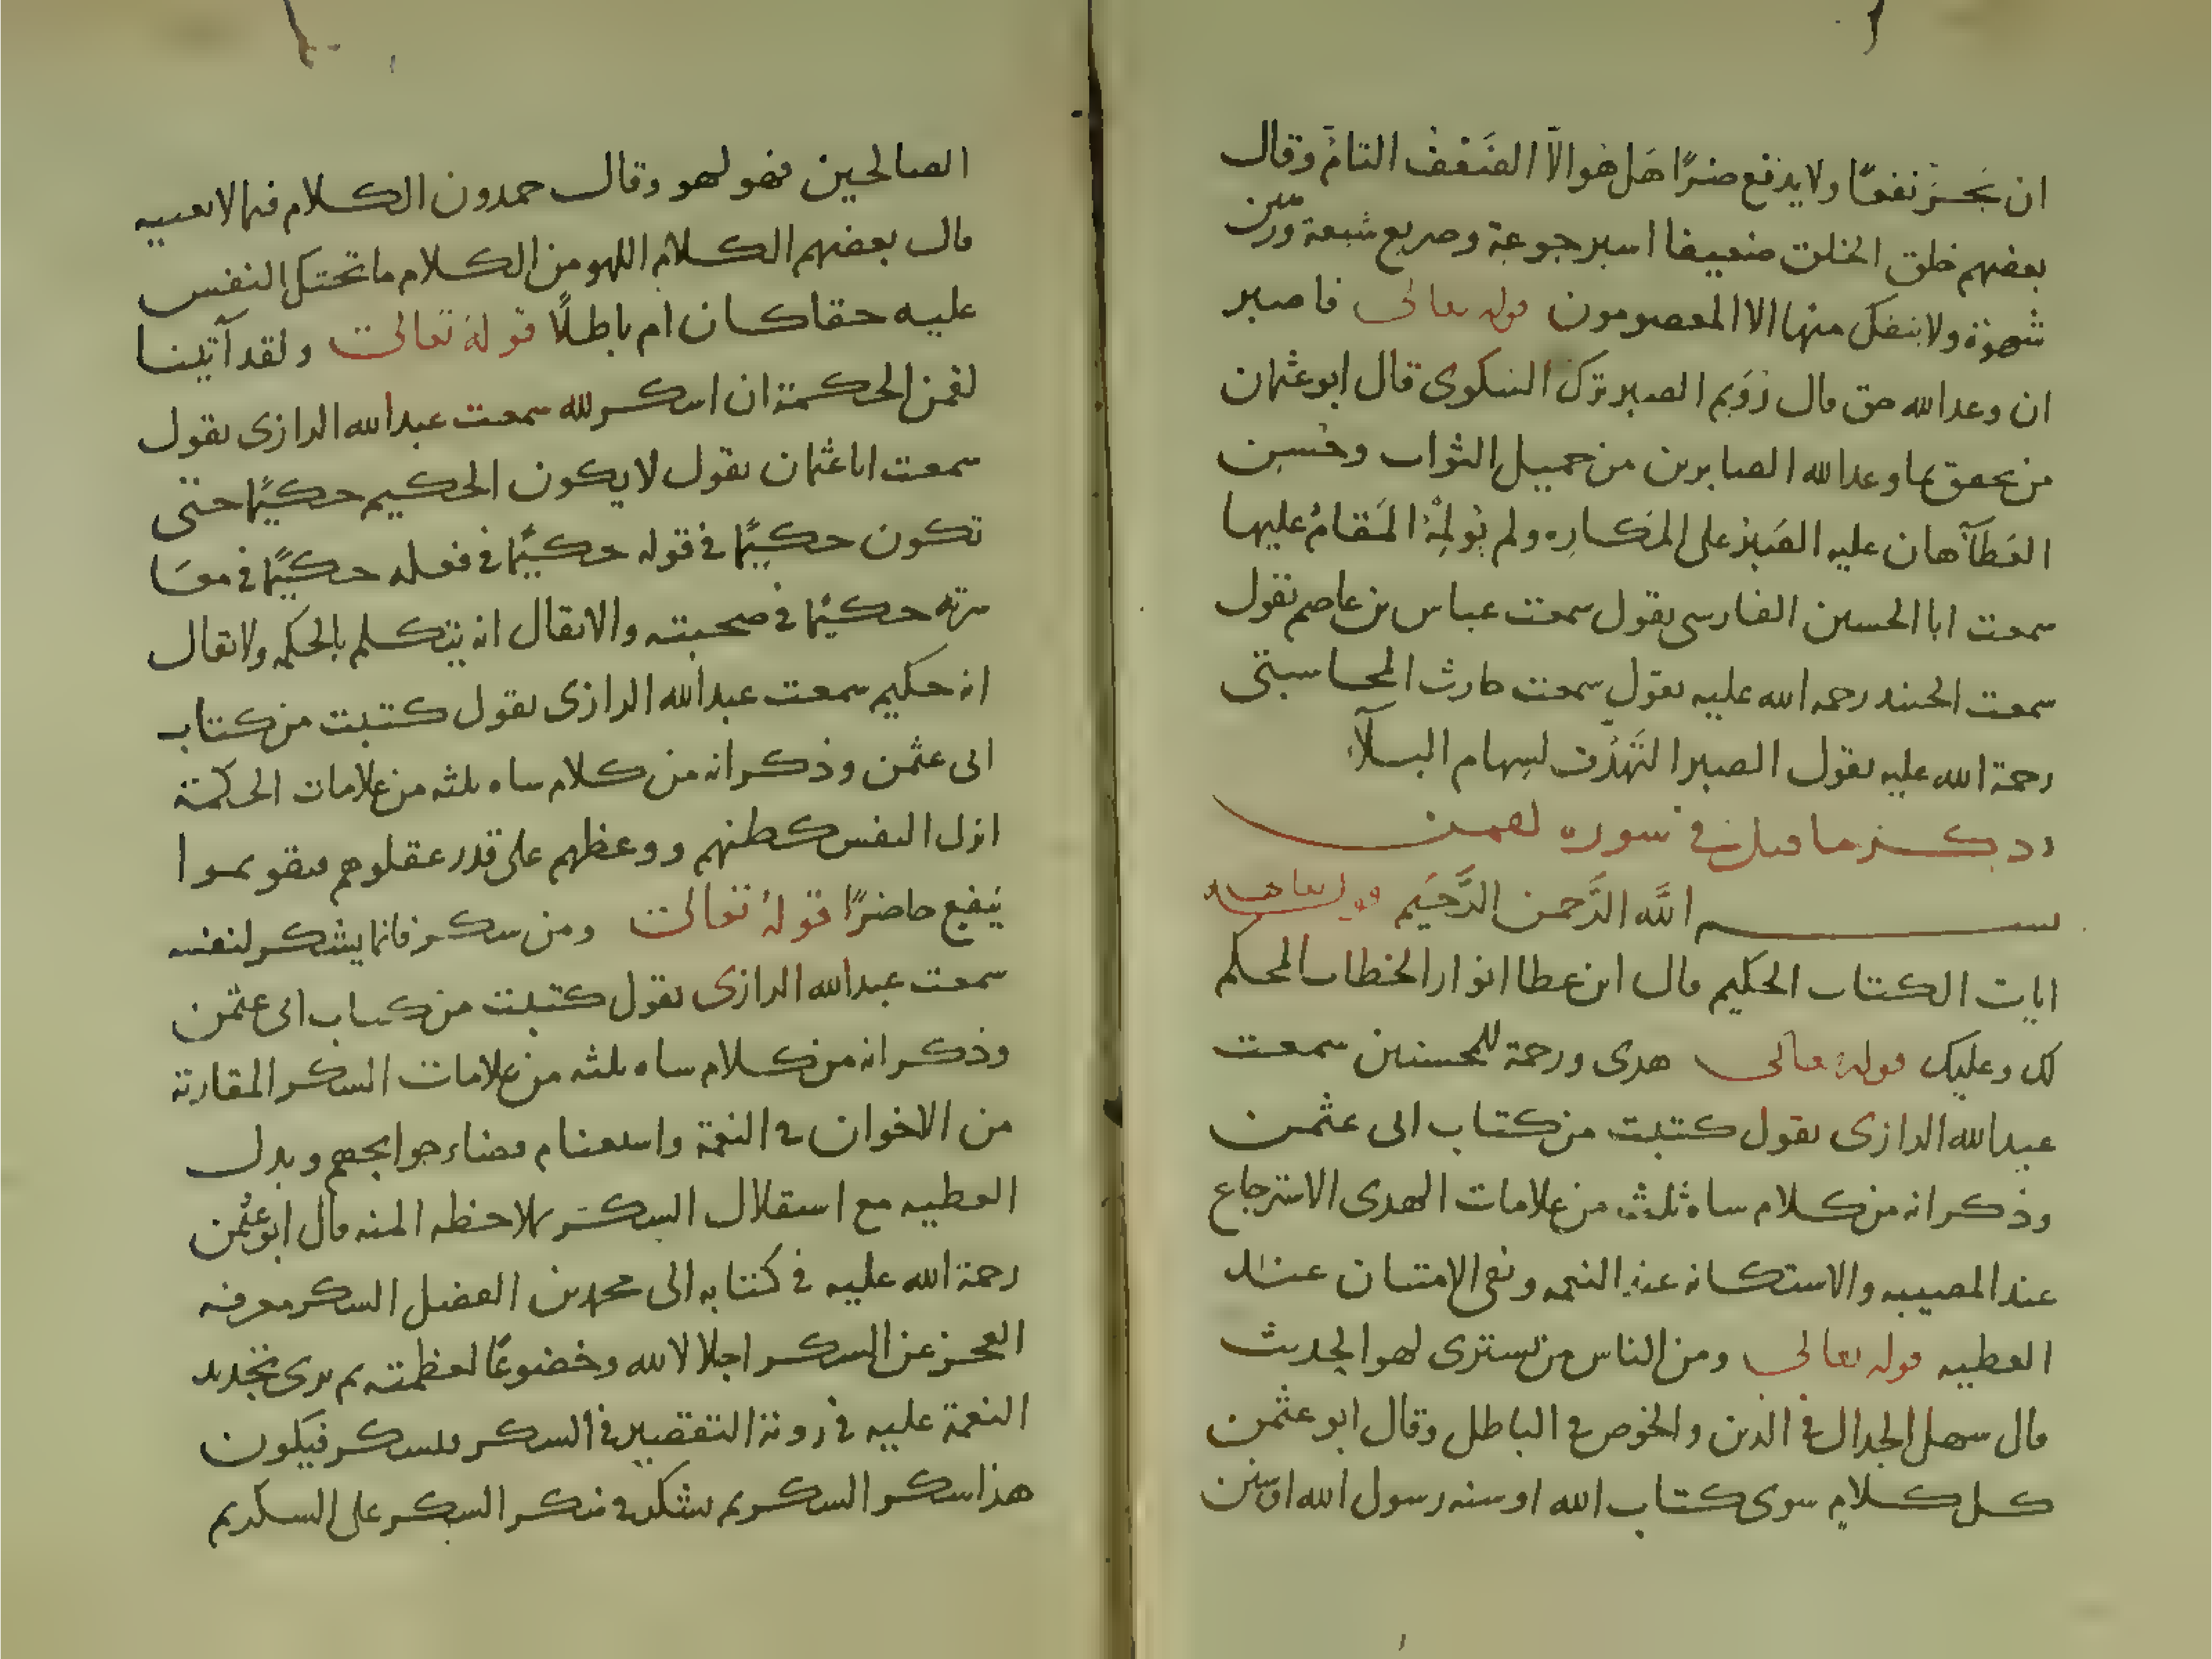 ان يجر نفعًا ولا يدفع ضرًا هَل هُو الاّ الضَعْفْ التامْ وقال
بعضهم خلق الخلق ضعيفا اسير جوعة وصريع شبعة ورهين
شهوة ولا ينفك منها الا المعصومون قوله تعالى فاصبر
ان وعد الله حق قال رُوَيم الصبر ترك الشكوى قال ابو عثمان
من تحقق بما وعد الله الصابرين من جميل الثواب وحُسن
العَطآ هان عليه الصَبرُ على المَكارِه ولم يُولِمْهُ المَقامُ عليها
سمعت ابا الحسين الفارسى يقول سمعت عباس بن عاصم يقول
سمعت الجنيد رحمه الله عليه يقول سمعت حارث المحاسبى
رحمة الله عليه يقول الصبر التَهَدُّف لسِهام البلآء
ذكر ما قيل فى سوره لقمن
بسم اللَّه الرَّحمن الرَّحيَم قوله تعالى
ايات الكتاب الحكيم قال ابن عطا انوار الخطاب المحكم
لك وعليك قوله تعالى هدى ورحمة للمحسنين سمعت
عبد الله الرازى يقول كتبت من كتاب ابى عثمن
وذكر انه من كلام شاه ثلثه من علامات الهدى الاسترجاع
عند المصيبه والاستكانه عند النعمه ونفى الامتنان عند
العطيه قوله تعالى ومن الناس من يشترى لهو الحديث
قال سهل الجدال فى الدين والخوض فى الباطل وقال ابو عثمن
كل كلام سوى كتاب الله او سنه رسول الله او سنن
الصالحين فهو لهو وقال حمدون الكلام فيما لا يعنيه
قال بعضهم الكلام اللهو من الكلام ما تحتك النفس
عليه حقا كان ام باطلًا قوله تعالى ولقد آتينا
لقمن الحكمة ان اشكر لله سمعت عبد الله الرازى يقول
سمعت ابا عثمان يقول لا يكون الحكيم حكيمًا حتى
تكون حكيمًا فى قوله حكيمًا فى فعله حكيمًا فى معا
شرته حكيمًا فى صحبته والا يقال انه يتكلم بالحكمه ولا يقال
انه حكيم سمعت عبد الله الرازى يقول كتبت من كتاب
ابى عثمن وذكر انه من كلام شاه ثلثه من علامات الحكمة
انزل النفس كطنهم ووعظهم على قدر عقلوهم فيقوموا
ينفع حاضرًا قوله تعالى ومن شكر فانما يشكر لنفسه
سمعت عبد الله الرازى يقول كتبت من كتاب ابى عثمن
وذكر انه من كلام شاه ثلثه من علامات الشكر المقارنة
من الاخوان فى النعمة واستغنام قضاء حوايجهم وبذل
العطيه مع استقلال الشكر بملاحظه المنه قال ابو عثمن
رحمة الله عليه فى كتابه الى محمد بن الفضل الشكر معرفه
العجز عن الشكر اجلالا لله وخضوعًا لعظمته ثم يرى تجديد
النعمة عليه فى روئة التقصير فى الشكر للشكر فيكون
هذا شكر الشكر ثم يشكر فى شكر الشكر على الشكر ثم